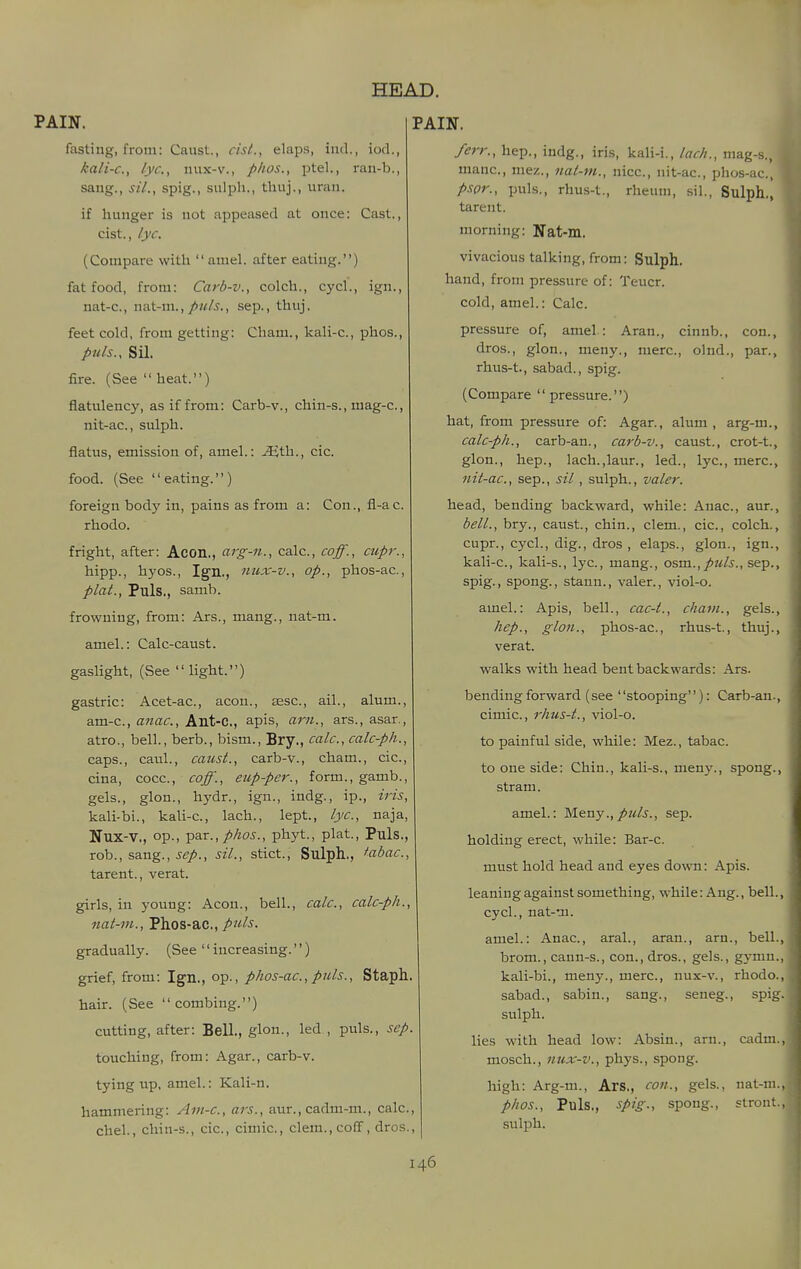 HEAD.
PAIN.
fasting, from: Caust., cist., elaps, ind., iod.,
kali-c., lyc., nux-v., phos., ptel., ran-b.,
sang., sil., spig., sulph., thuj., uran.
if hunger is not appeased at once: Cast.,
cist., lyc.
(Compare with “amel. after eating.”)
fat food, from: Carb-v., colch., cycl., ign.,
nat-c., nat-m., puls., sep., thuj.
feet cold, from getting: Cham., kali-c., phos.,
puls., Sil.
fire. (See “heat.”)
flatulency, as if from: Carb-v., chin-s., mag-c.,
nit-ac., sulph.
flatus, emission of, amel.: Æth., cic.
food. (See “eating.”)
foreign body in, pains as from a: Con., fl-ac.
rhodo.
fright, after: Acon., arg-n., calc., coff., cupr.,
hipp., hyos., Ign., nux-v., op., phos-ac.,
plat., Puls., samb.
frowning, from: Ars., mang., nat-m.
amel.: Calc-caust.
gaslight, (See “light.”)
gastric: Acet-ac., acon., æsc., ail., alum.,
am-c., anac., Ant-c., apis, arn., ars., asar.,
atro., bell., berb., bism., Bry., calc., calc-ph.,
caps., caul., caust., carb-v., cham., cic.,
cina, cocc., coff., eup-per., form., gamb.,
gels., glon., hydr., ign., indg., ip., iris,
kali-bi., kali-c., lach., lept., lyc., naja,
Nux-v., op., par., phos., phyt., plat., Puls.,
rob., sang., sep., sil., stict., Sulph., tabac.,
tarent., verat.
girls, in young: Acon., bell., calc., calc-ph.,
nat-m., Phos-ac., puls.
gradually. (See “increasing.”)
grief, from: Ign., op., phos-ac., puls., Staph.
hair. (See “combing.”)
cutting, after: Bell., glon., led , puls., sep.
touching, from: Agar., carb-v.
tying up, amel.: Kali-n.
hammering: Am-c., ars., aur., cadm-m., calc.,
chel., chin-s., cic., cimic., clem., coff, dros.,
PAIN.
ferr., hep., indg., iris, kali-i., lach., mag-s.,
manc., mez., nat-m., nicc., nit-ac., phos-ac.,
psor., puls., rhus-t., rheum, sil., Sulph.,
tarent.
morning: Nat-m.
vivacious talking, from: Sulph.
hand, from pressure of: Teucr.
cold, amel.: Calc.
pressure of, amel.: Aran., cinnb., con.,
dros., glon., meny., merc., olnd., par.,
rhus-t., sabad., spig.
(Compare “pressure.”)
hat, from pressure of: Agar., alum , arg-m.,
calc-ph., carb-an., carb-v., caust., crot-t.,
glon., hep., lach.,laur., led., lyc., merc.,
nit-ac., sep., sil , sulph., valer.
head, bending backward, while: Anac., aur.,
bell., bry., caust., chin., clem., cic., colch.,
cupr., cycl., dig., dros , elaps., glon., ign.,
kali-c., kali-s., lyc., mang., osm., puls., sep.,
spig., spong., stann., valer., viol-o.
amel.: Apis, bell., cac-t., cham., gels.,
hep., glon., phos-ac., rhus-t., thuj.,
verat.
walks with head bent backwards: Ars.
bending forward (see “stooping”): Carb-an.,
cimic., rhus-t., viol-o.
to painful side, while: Mez., tabac.
to one side: Chin., kali-s., meny., spong.,
stram.
amel.: Meny., puls., sep.
holding erect, while: Bar-c.
must hold head and eyes down: Apis.
leaning against something, while: Ang., bell.,
cycl., nat-m.
amel.: Anac., aral., aran., arn., bell.,
brom., cann-s., con., dros., gels., gymn.,
kali-bi., meny., merc., nux-v., rhodo.,
sabad., sabin., sang., seneg., spig.
sulph.
lies with head low: Absin., arn., cadm.,
mosch., nux-v., phys., spong.
high: Arg-m., Ars., con., gels., nat-m.,
phos., Puls., spig., spong., stront.,
sulph.
146